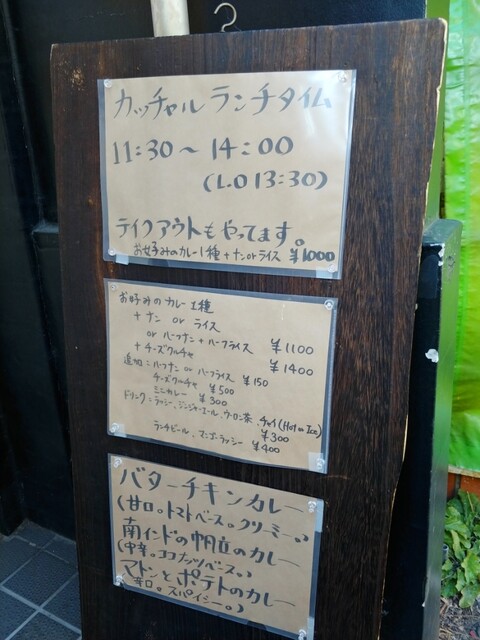 カッチャル ランチタイム
11:30～14:00
(L.O 13:30)
テイクアウトもやってます。
お好みのカレー1種+ナンorライス ¥1000
お好みのカレー1種
+ナン or ライス
or ハーフナン+ハーフライス ¥1100
+チーズクルチャ ¥1400
追加:ハーフナン or ハーフライス ¥150
チーズクルチャ ¥500
ミニカレー ¥300
ドリンク:ラッシー、ジンジャーエール、ウーロン茶、チャイ(Hot or Ice)
¥300
ランチビール、マンゴーラッシー ¥400
バターチキンカレー
(甘口。トマトベース。クリーミー。)
南インドの帆立のカレー
(中辛。ココナッツベース。)
マトンとポテトのカレー
辛口。スパイシー。)